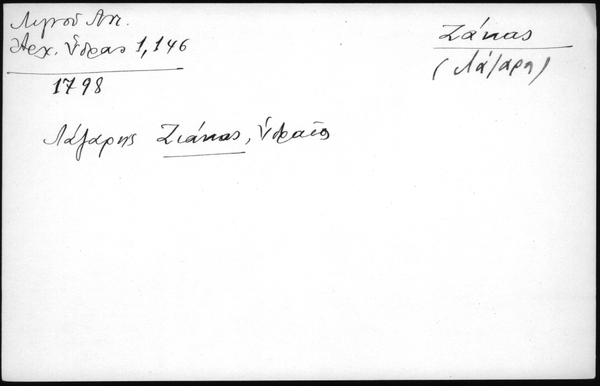 Λιγνοῦ Αντ.
Ἀρχ. Ὕδρας 1,146
1798
Ζάκας
(Λάζαρη)
Λάζαρης Ζιάκας, Ὑδραῖος